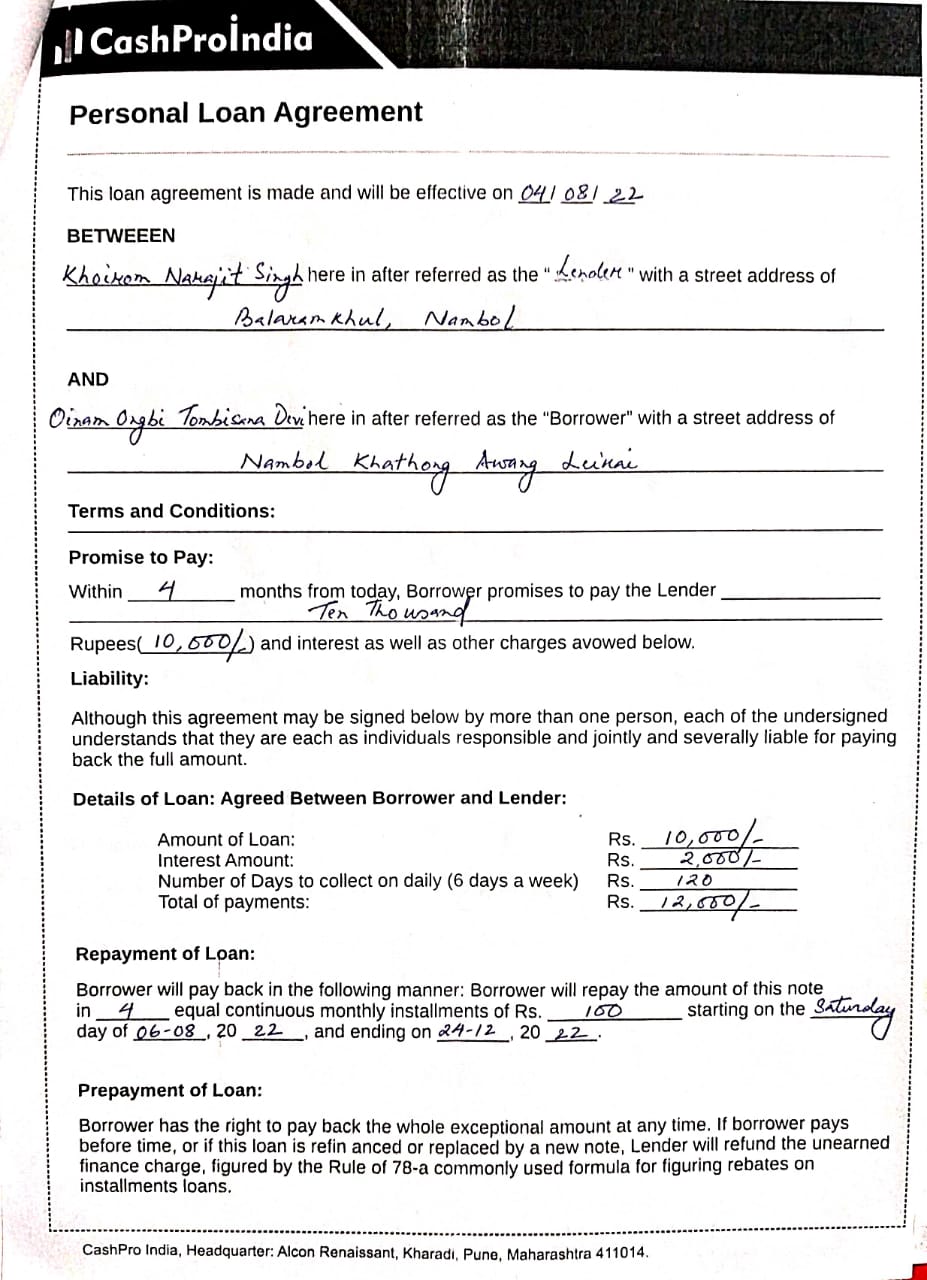 CashProIndia
Personal Loan Agreement
This loan agreement is made and will be effective on 04/ 08/ 22
BETWEEEN
Khoirom Narajit Singh here in after referred as the "Lender" with a street address of
Balaram Khul, Nambol
AND
Oinam Ongbi Tombisana Devi here in after referred as the "Borrower" with a street address of
Nambol Khathong Awang Leikai
Terms and Conditions:
Promise to Pay:
Within 4 months from today, Borrower promises to pay the Lender
Ten Thousand
Rupees( 10,000/-) and interest as well as other charges avowed below.
Liability:
Although this agreement may be signed below by more than one person, each of the undersigned
understands that they are each as individuals responsible and jointly and severally liable for paying
back the full amount.
Details of Loan: Agreed Between Borrower and Lender:
Amount of Loan: Rs. 10,000/-
Interest Amount: Rs. 2,000/-
Number of Days to collect on daily (6 days a week) Rs. 120
Total of payments: Rs. 12,000/-
Repayment of Loan:
Borrower will pay back in the following manner: Borrower will repay the amount of this note
in 4 equal continuous monthly installments of Rs. 100 starting on the Saturday
day of 06-08, 20 22, and ending on 24-12, 20 22.
Prepayment of Loan:
Borrower has the right to pay back the whole exceptional amount at any time. If borrower pays
before time, or if this loan is refin anced or replaced by a new note, Lender will refund the unearned
finance charge, figured by the Rule of 78-a commonly used formula for figuring rebates on
installments loans.
CashPro India, Headquarter: Alcon Renaissant, Kharadi, Pune, Maharashtra 411014.